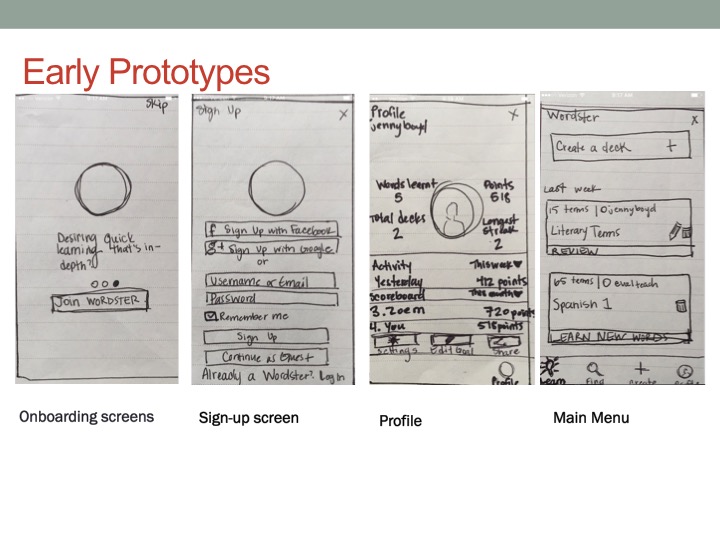 Early Prototypes
Skip
Desiring quick
learning that's in-
depth?
Join WORDSTER
Onboarding screens
Sign Up
X
f Sign Up with Facebook
g+ Sign Up with Google
or
Username or Email
Password
Remember me
Sign Up
Continue as Guest
Already a Wordster? Log In
Sign-up screen
Profile
jennyboyd
X
Words learnt
5
Points
518
Total decks
2
Longest
streak
2
Activity
This week
Yesterday
412 points
Scoreboard
This month
3. Zoem
720 points
4. You
518 points
Settings
Edit Goal
Share
Profile
Profile
Wordster
X
Create a deck +
Last week
15 terms | jennyboyd
Literary Terms
REVIEW
65 terms |
Spanish 1
LEARN NEW WORDS
Learn
Find
Create
Main Menu